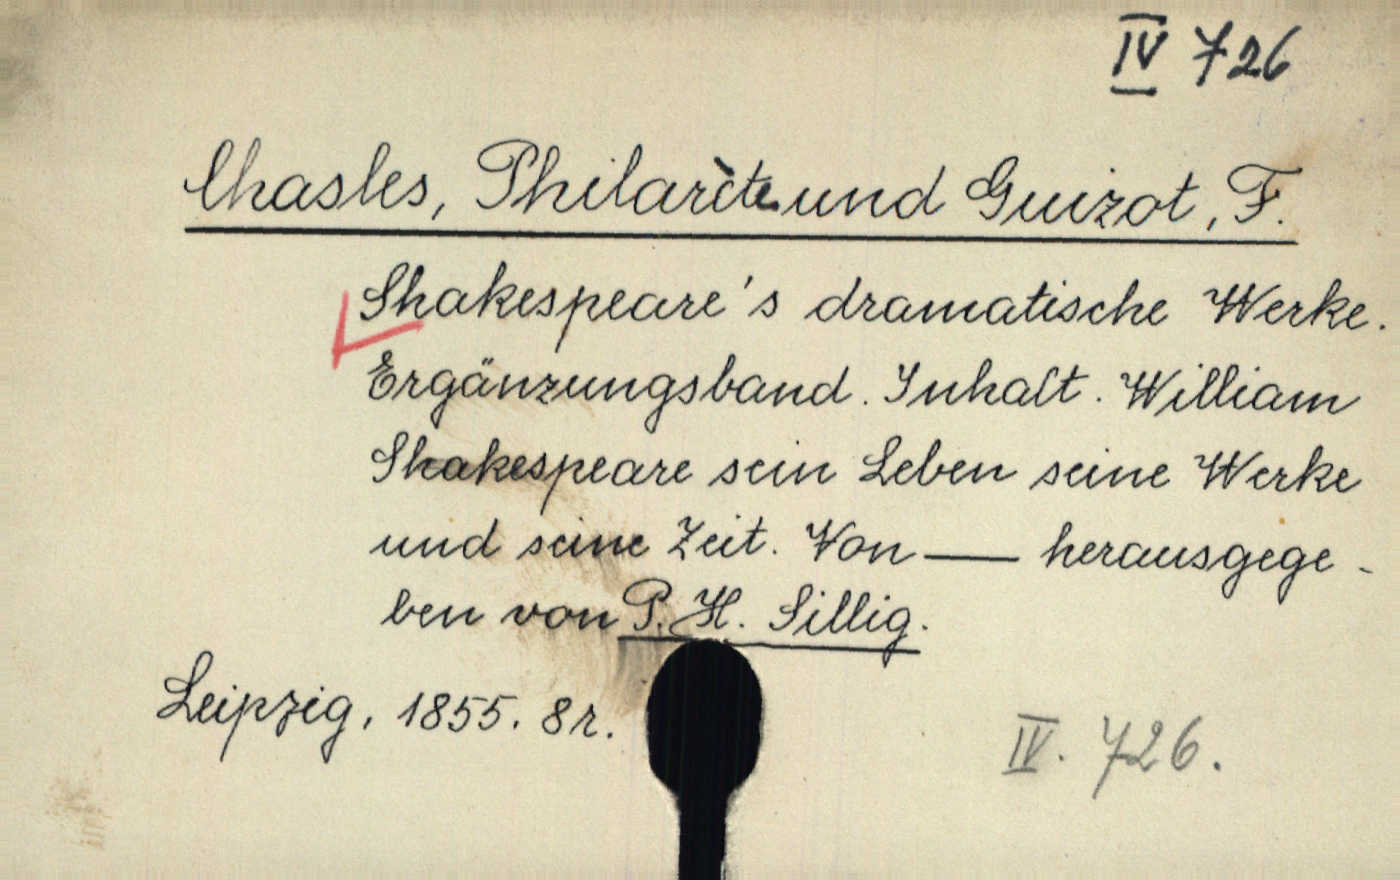 IV 726
Chasles, Philarète und Guizot, F.
Shakespeare's dramatische Werke.
Ergänzungsband. Inhalt. William
Shakespeare sein Leben seine Werke
und seine Zeit. Von — herausgege-
ben von P. H. Sillig.
Leipzig, 1855. 8r.
IV. 726.